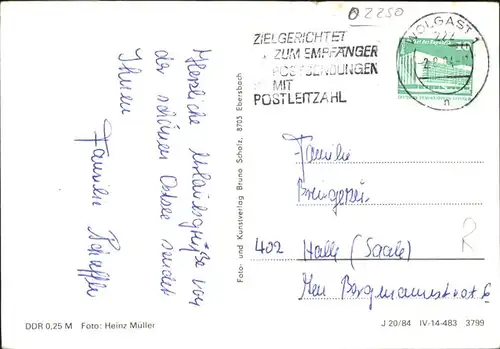 02250
ZIELGERICHTET
ZUM EMPFÄNGER
POSTSENDUNGEN
MIT
POSTLEITZAHL
WOLGAST 1
222
n
10
Herzliche Urlaubsgrüße von
der schönen Ostsee sendet
Ihnen
Familie
Foto- und Kunstverlag Bruno Scholz, 8705 Ebersbach
Familie
402 Halle (Saale)
R
DDR 0,25 M Foto: Heinz Müller
J 20/84 IV-14-483 3799